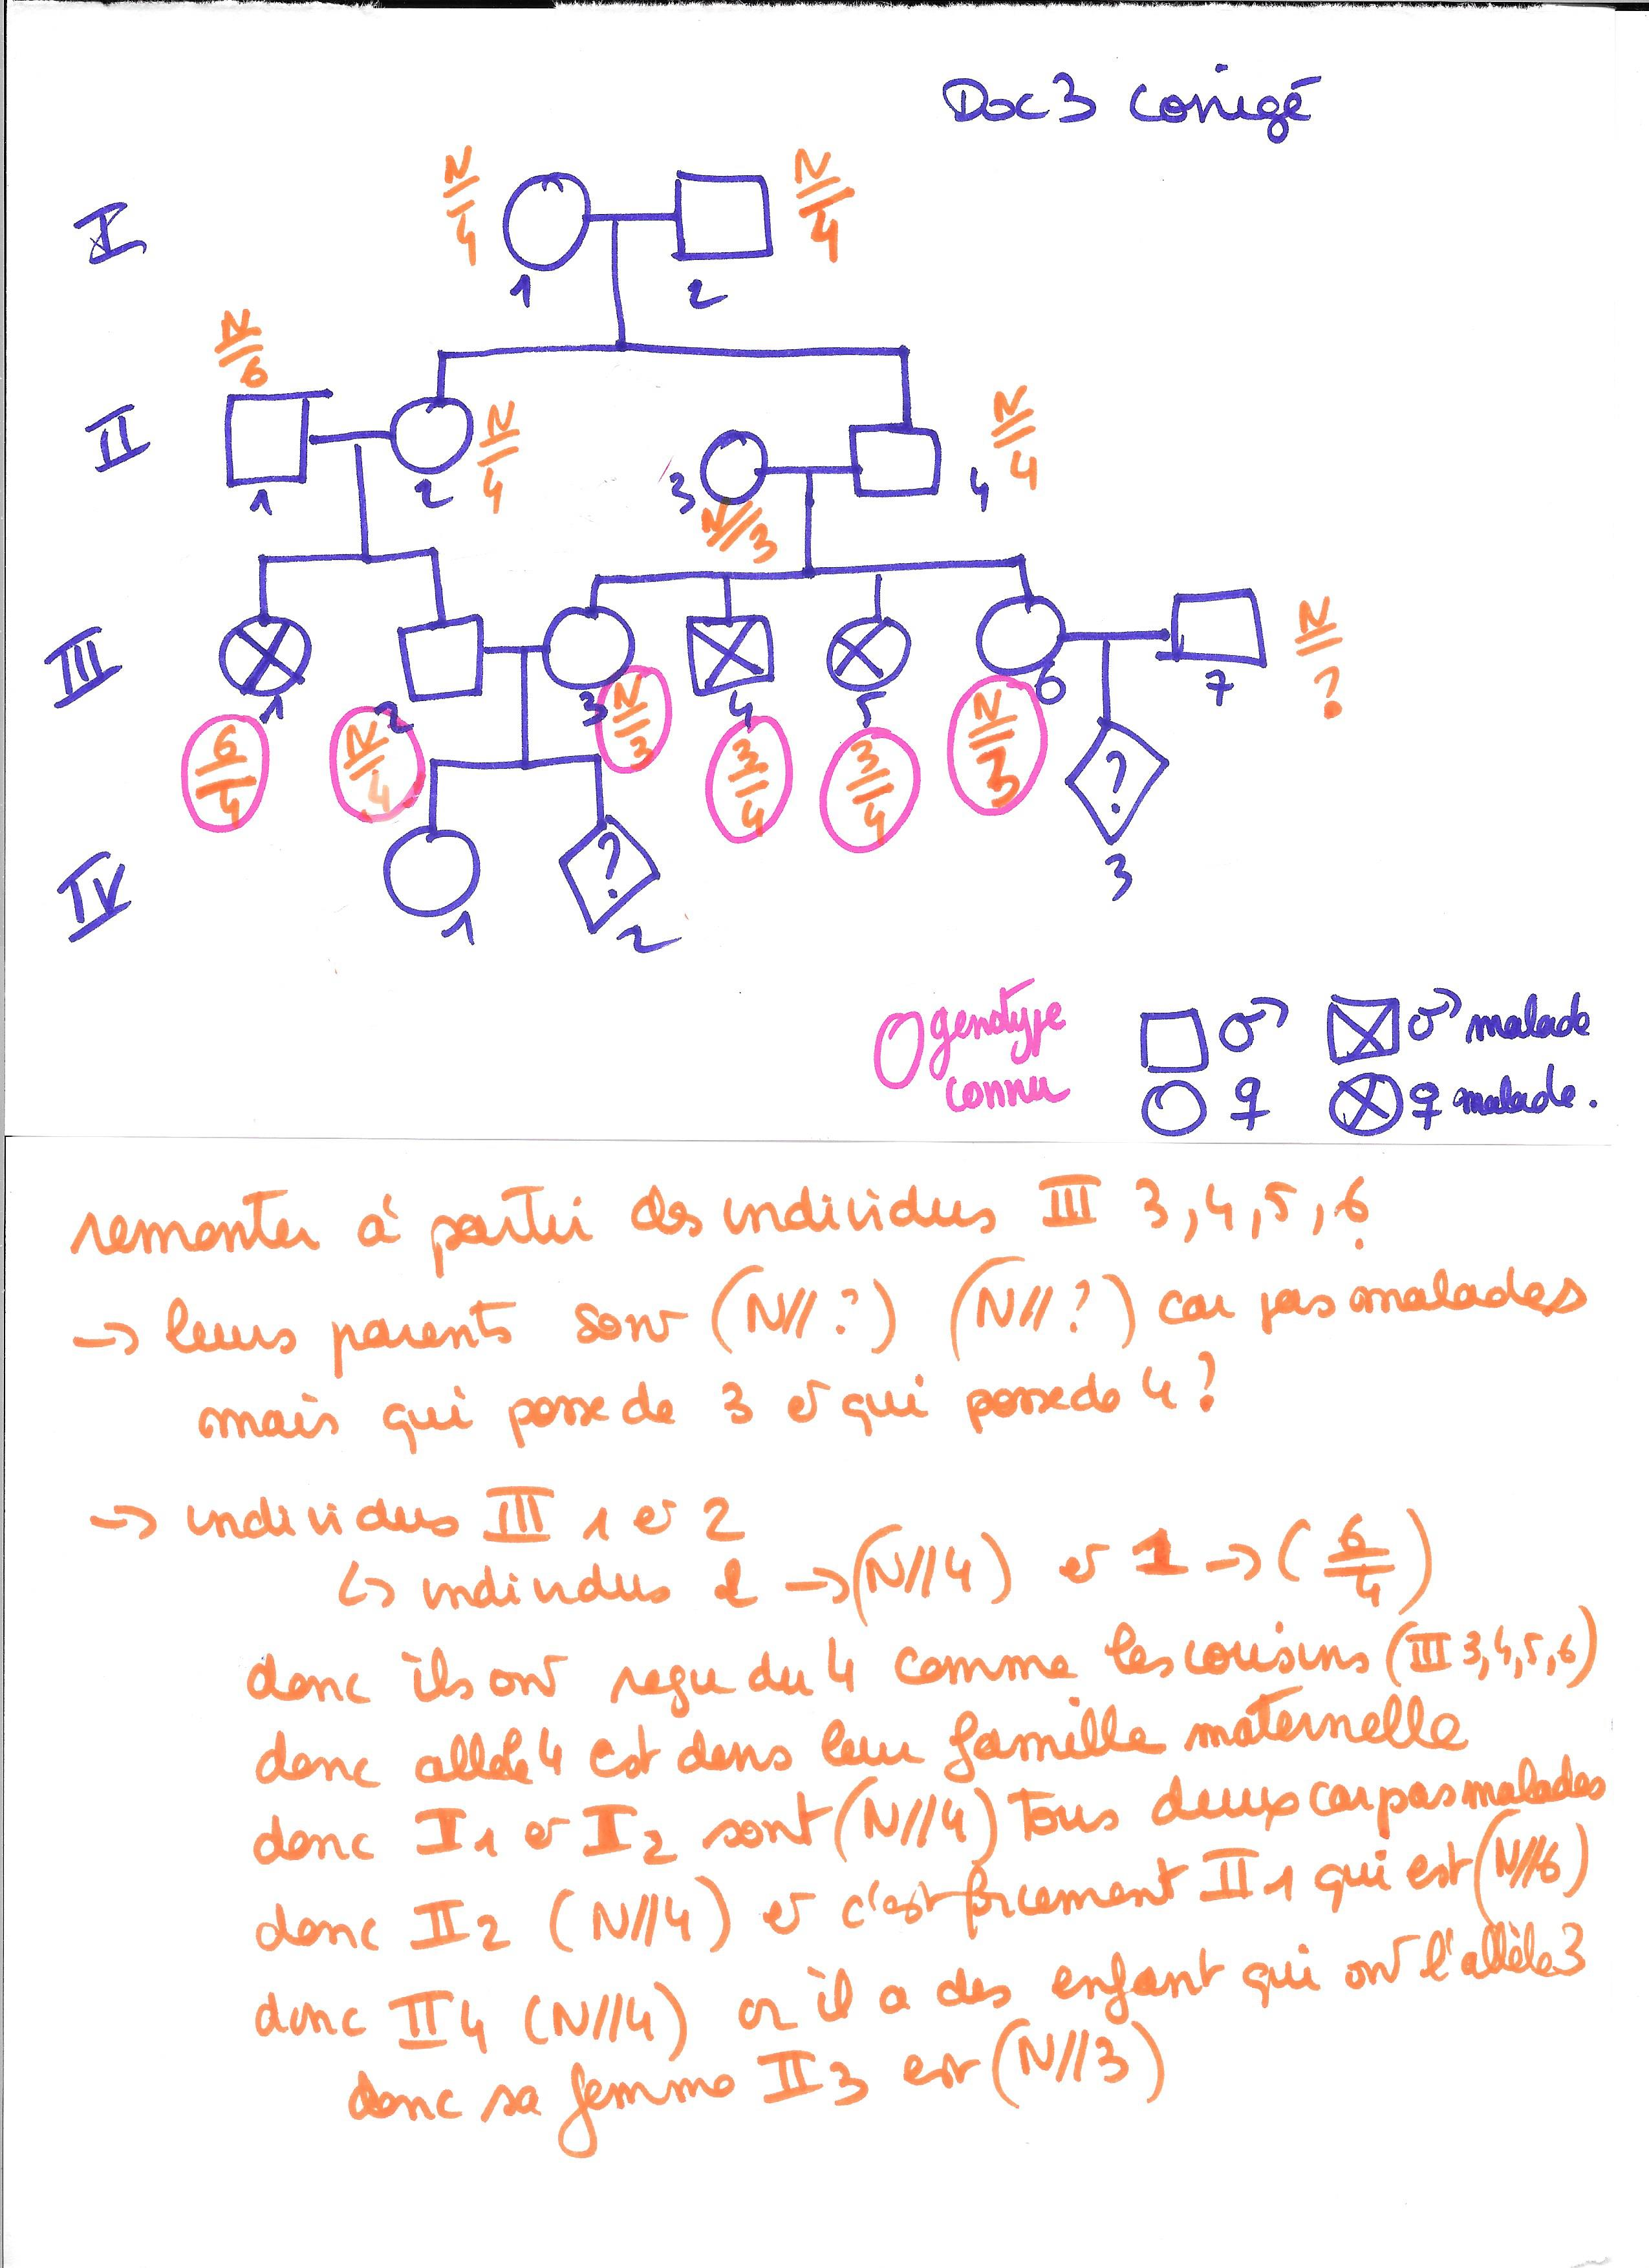 Doc 3 corrigé
N/4 N/4
I
1 2
N/6
II
N/4 N/4
1 2 3 4
N//3
III
N/?
1 2 3 4 5 6 7
6/4 N/4 N/3 3/4 3/4 N/3
?
3
IV
?
1 2
genotype
connu
♂ ♂ malade
♀ ♀ malade.
remonter à partir des individus III 3,4,5,6
→ leurs parents sont (N//?) (N//?) car pas malades
mais qui possede 3 et qui possede 4?
→ individus III 1 et 2
↳ individus 2 → (N//4) et 1 → (6/4)
donc ils ont reçu du 4 comme les cousins (III 3,4,5,6)
donc allèle 4 est dans leur famille maternelle
donc I1 et I2 sont (N//4) Tous deux car pas malades
donc II2 (N//4) et c'est forcement II1 qui est (N//6)
donc II4 (N//4) or il a des enfant qui ont l'allèle 3
donc sa femme II3 est (N//3)